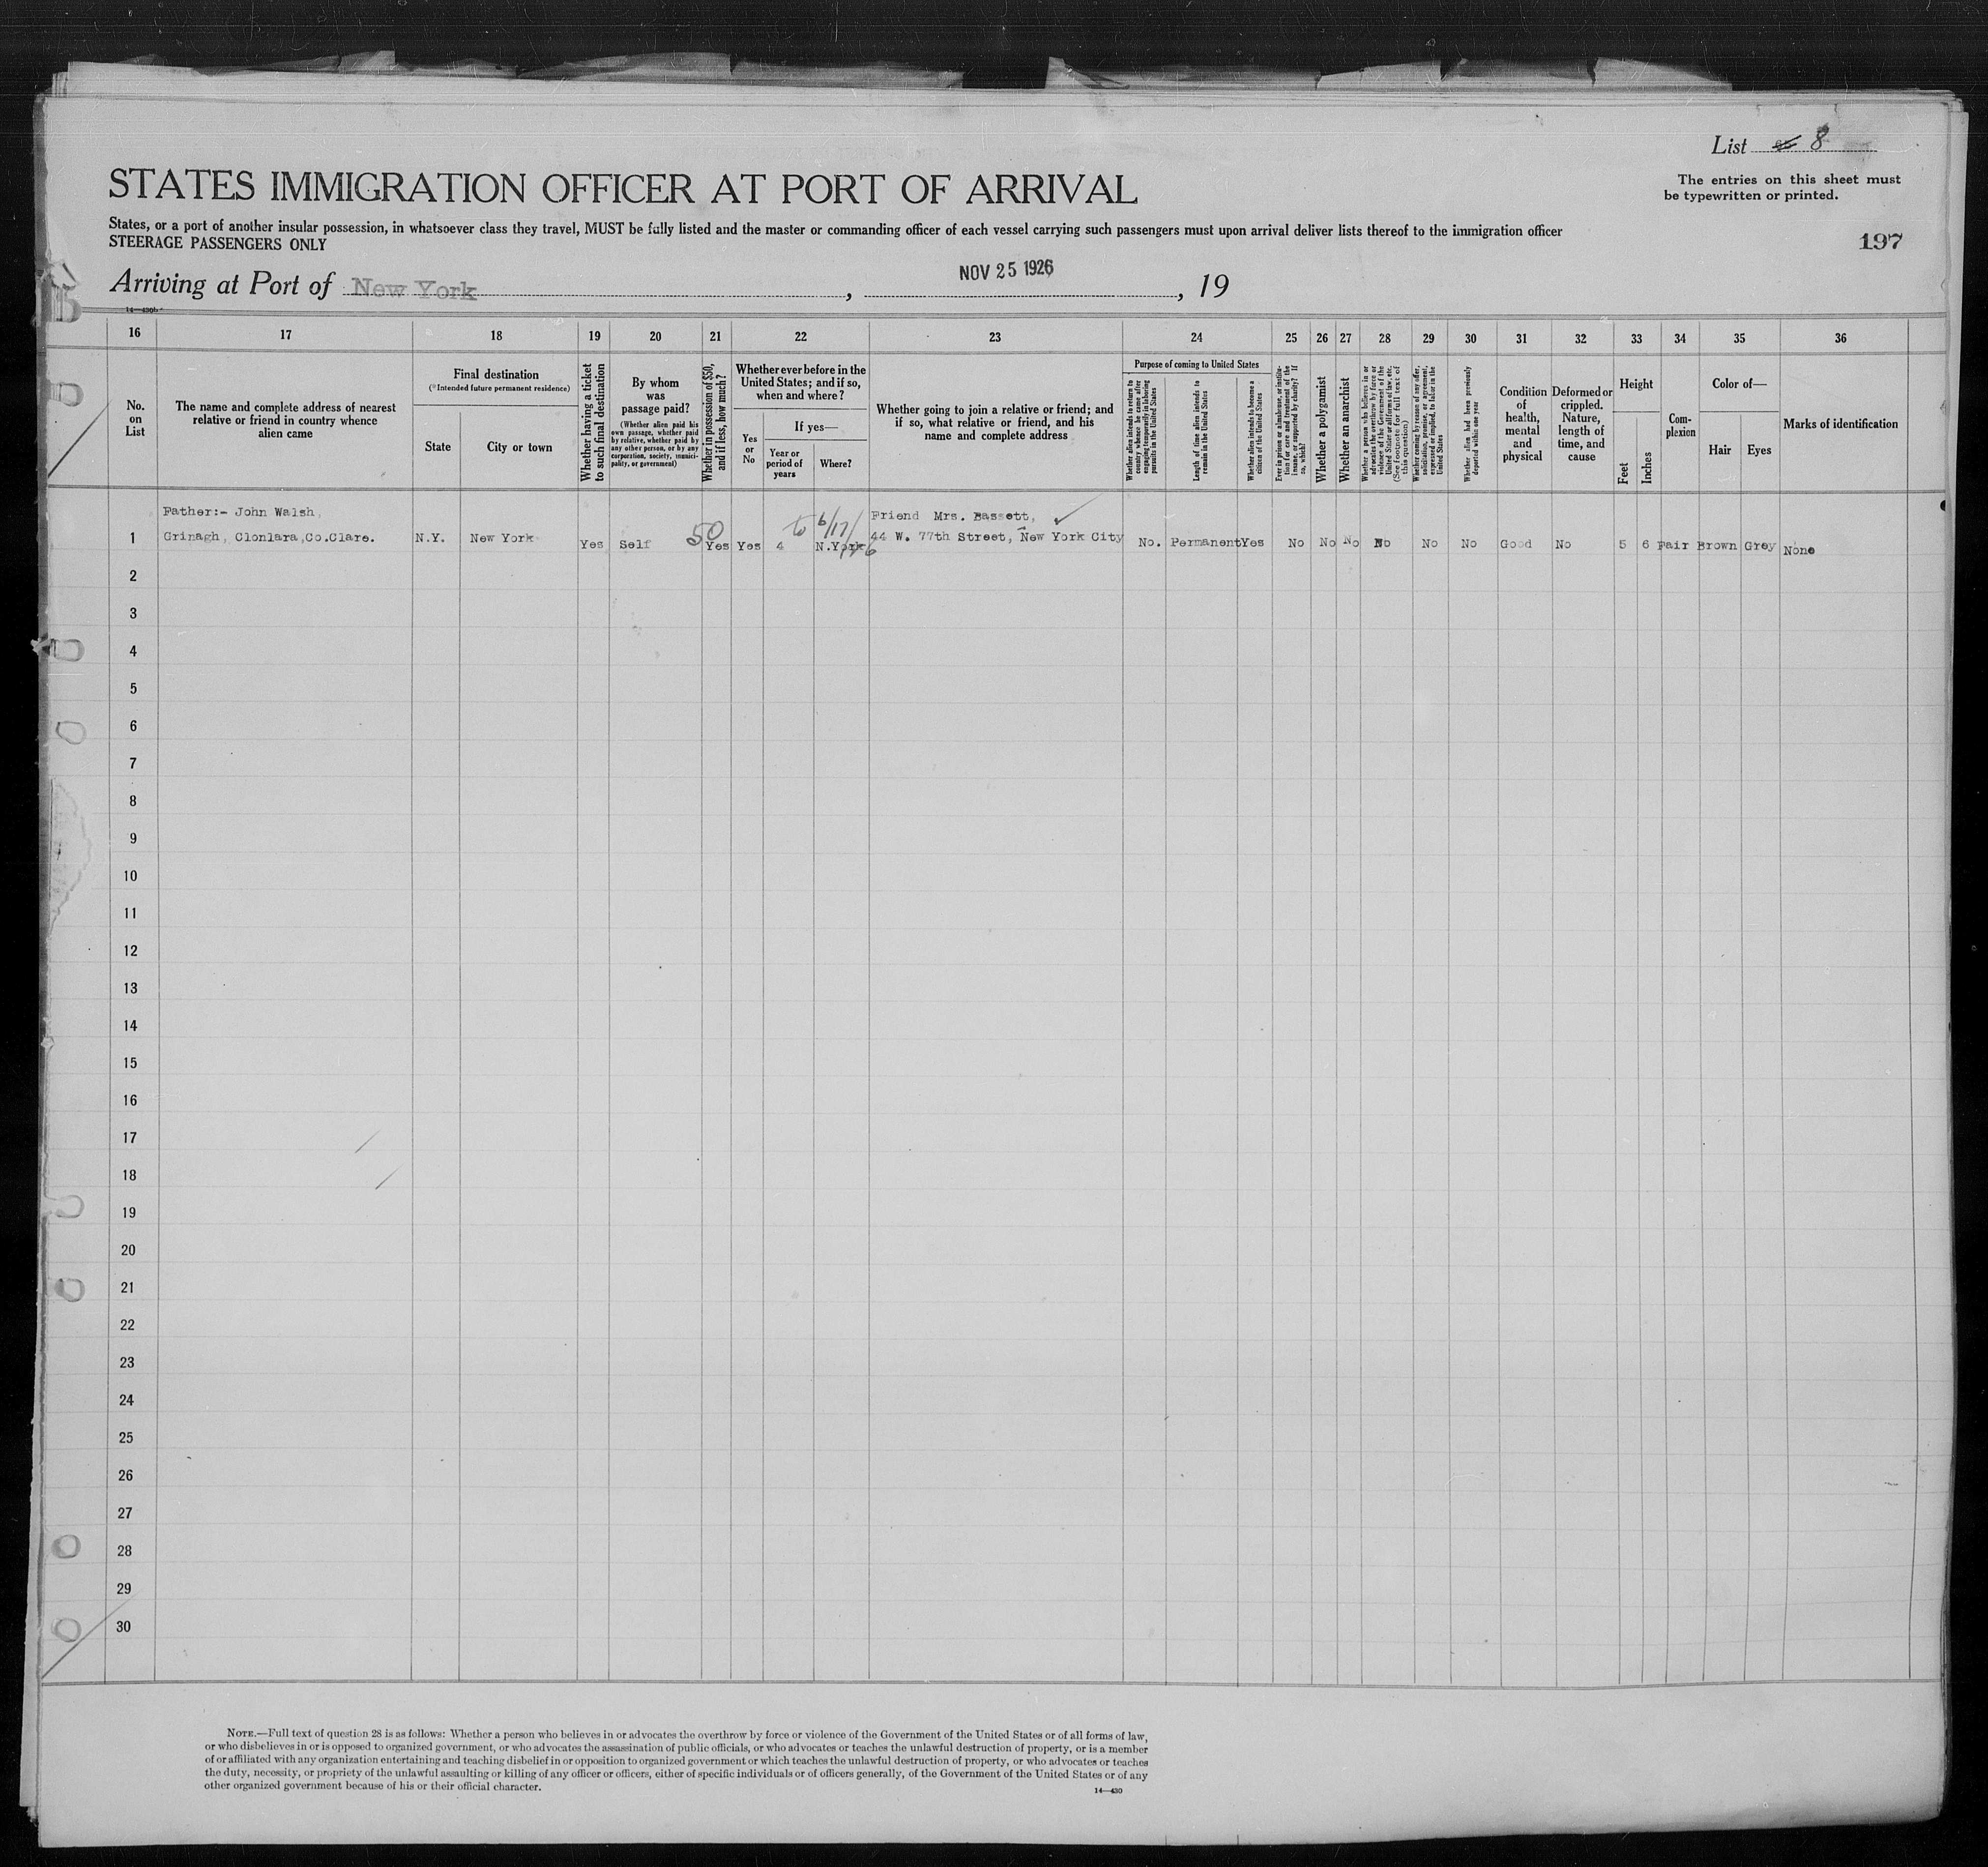 List 8
STATES IMMIGRATION OFFICER AT PORT OF ARRIVAL
The entries on this sheet must
be typewritten or printed.
States, or a port of another insular possession, in whatsoever class they travel, MUST be fully listed and the master or commanding officer of each vessel carrying such passengers must upon arrival deliver lists thereof to the immigration officer
STEERAGE PASSENGERS ONLY
197
Arriving at Port of New York, NOV 25 1926, 19
14—430b
16 17 18 19 20 21 22 23 24 25 26 27 28 29 30 31 32 33 34 35 36
No.
on
List
The name and complete address of nearest
relative or friend in country whence
alien came
Final destination
(*Intended future permanent residence)
State
City or town
Whether having a ticket
to such final destination
By whom
was
passage paid?
(Whether alien paid his
own passage, whether paid
by relative, whether paid by
any other person, or by any
corporation, society, munici-
pality, or government)
Whether in possession of $50,
and if less, how much?
Whether ever before in the
United States; and if so,
when and where?
Yes
or
No
If yes—
Year or
period of
years
Where?
Whether going to join a relative or friend; and
if so, what relative or friend, and his
name and complete address
Purpose of coming to United States
Whether alien intends to return to
country whence he came after
engaging temporarily in laboring
pursuits in the United States
Length of time alien intends to
remain in the United States
Whether alien intends to become a
citizen of the United States
Ever in prison or almshouse, or institu-
tion for care and treatment of the
insane, or supported by charity? If
so, which?
Whether a polygamist
Whether an anarchist
Whether a person who believes in or
advocates the overthrow by force or
violence of the Government of the
United States or all forms of law, etc.
(See footnote for full text of
this question)
Whether coming by reason of any offer,
solicitation, promise, or agreement,
expressed or implied, to labor in the
United States
Whether alien had been previously
deported within one year
Condition
of
health,
mental
and
physical
Deformed or
crippled.
Nature,
length of
time, and
cause
Height
Feet
Inches
Com-
plexion
Color of—
Hair
Eyes
Marks of identification
Father:- John Walsh,
1 Grinagh, Clonlara, Co.Clare. N.Y. New York Yes Self 50 Yes Yes 4 to 6/17/ N.York
Friend Mrs. Bassett,
44 W. 77th Street, New York City No. Permanent Yes No No No No No No Good No 5 6 Fair Brown Grey None
2
3
4
5
6
7
8
9
10
11
12
13
14
15
16
17
18
19
20
21
22
23
24
25
26
27
28
29
30
NOTE.—Full text of question 28 is as follows: Whether a person who believes in or advocates the overthrow by force or violence of the Government of the United States or of all forms of law,
or who disbelieves in or is opposed to organized government, or who advocates the assassination of public officials, or who advocates or teaches the unlawful destruction of property, or is a member
of or affiliated with any organization entertaining and teaching disbelief in or opposition to organized government or which teaches the unlawful destruction of property, or who advocates or teaches
the duty, necessity, or propriety of the unlawful assaulting or killing of any officer or officers, either of specific individuals or of officers generally, of the Government of the United States or of any
other organized government because of his or their official character.
14—430